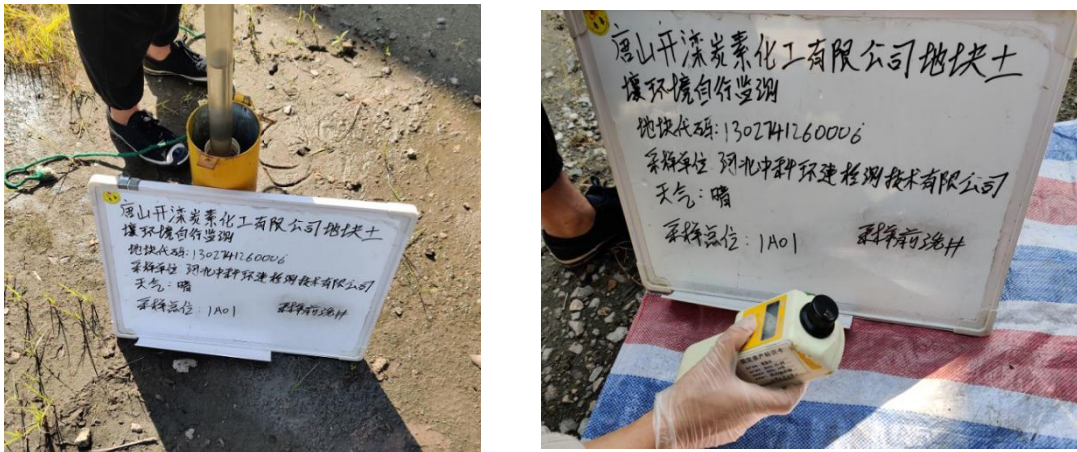 唐山开滦炭素化工有限公司地块土
壤环境自行监测
地块代码:1302741260006
采样单位 河北中科环建检测技术有限公司
天气:晴
采样点位:1A01 采样前洗井
唐山开滦炭素化工有限公司地块土
壤环境自行监测
地块代码:1302741260006
采样单位 河北中科环建检测技术有限公司
天气:晴
采样点位:1A01 采样前洗井
固定资产标识卡